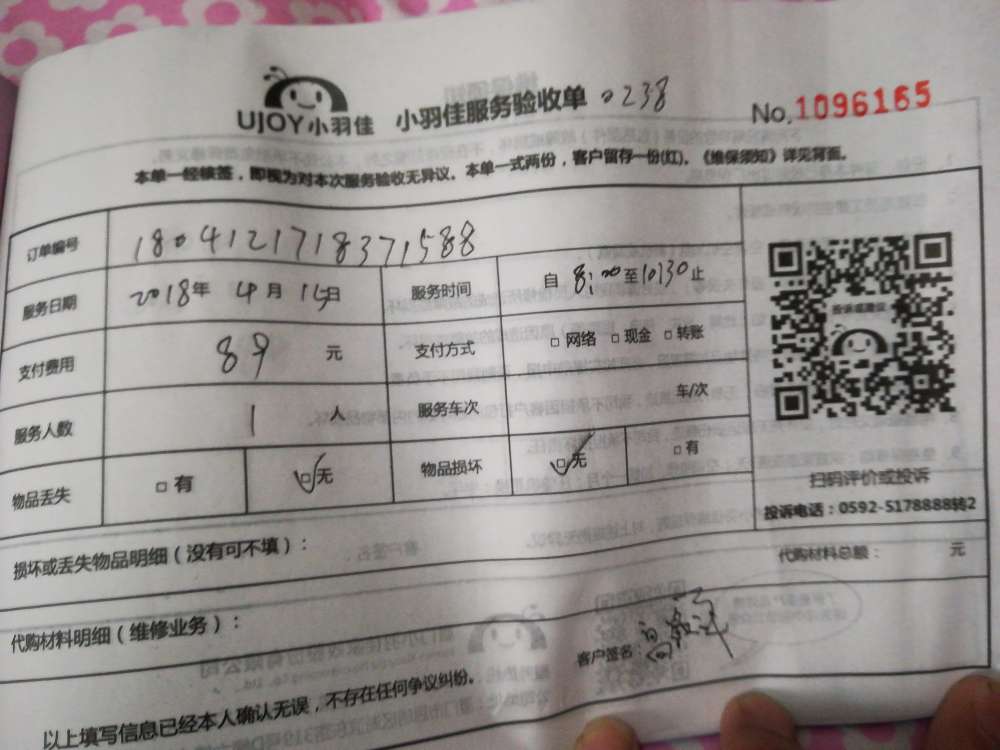 UJOY小羽佳 小羽佳服务验收单 0238 No.1096165
本单一经核签，即视为对本次服务验收无异议。本单一式两份，客户留存一份(红)。《维保须知》详见背面。
订单编号 180412171837 1588
服务日期 2018年 4月 14日 服务时间 自 8:00 至 10:30 止
支付费用 89 元 支付方式 □ 网络 □ 现金 □ 转账
服务人数 1 人 服务车次 车/次
物品丢失 □ 有 ☑无 物品损坏 ☑无 □ 有
扫码评价或投诉
投诉电话：0592-5178888转2
损坏或丢失物品明细（没有可不填）：
代购材料总额： 元
代购材料明细（维修业务）：
客户签名：
以上填写信息已经本人确认无误，不存在任何争议纠纷。